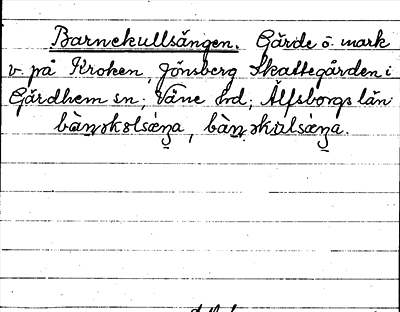 Barnekullsängen. Gärde o. mark
v. på Kroken, Jönsberg Skattegården i
Gärdhem sn; Väne hd; Älfsborgs län